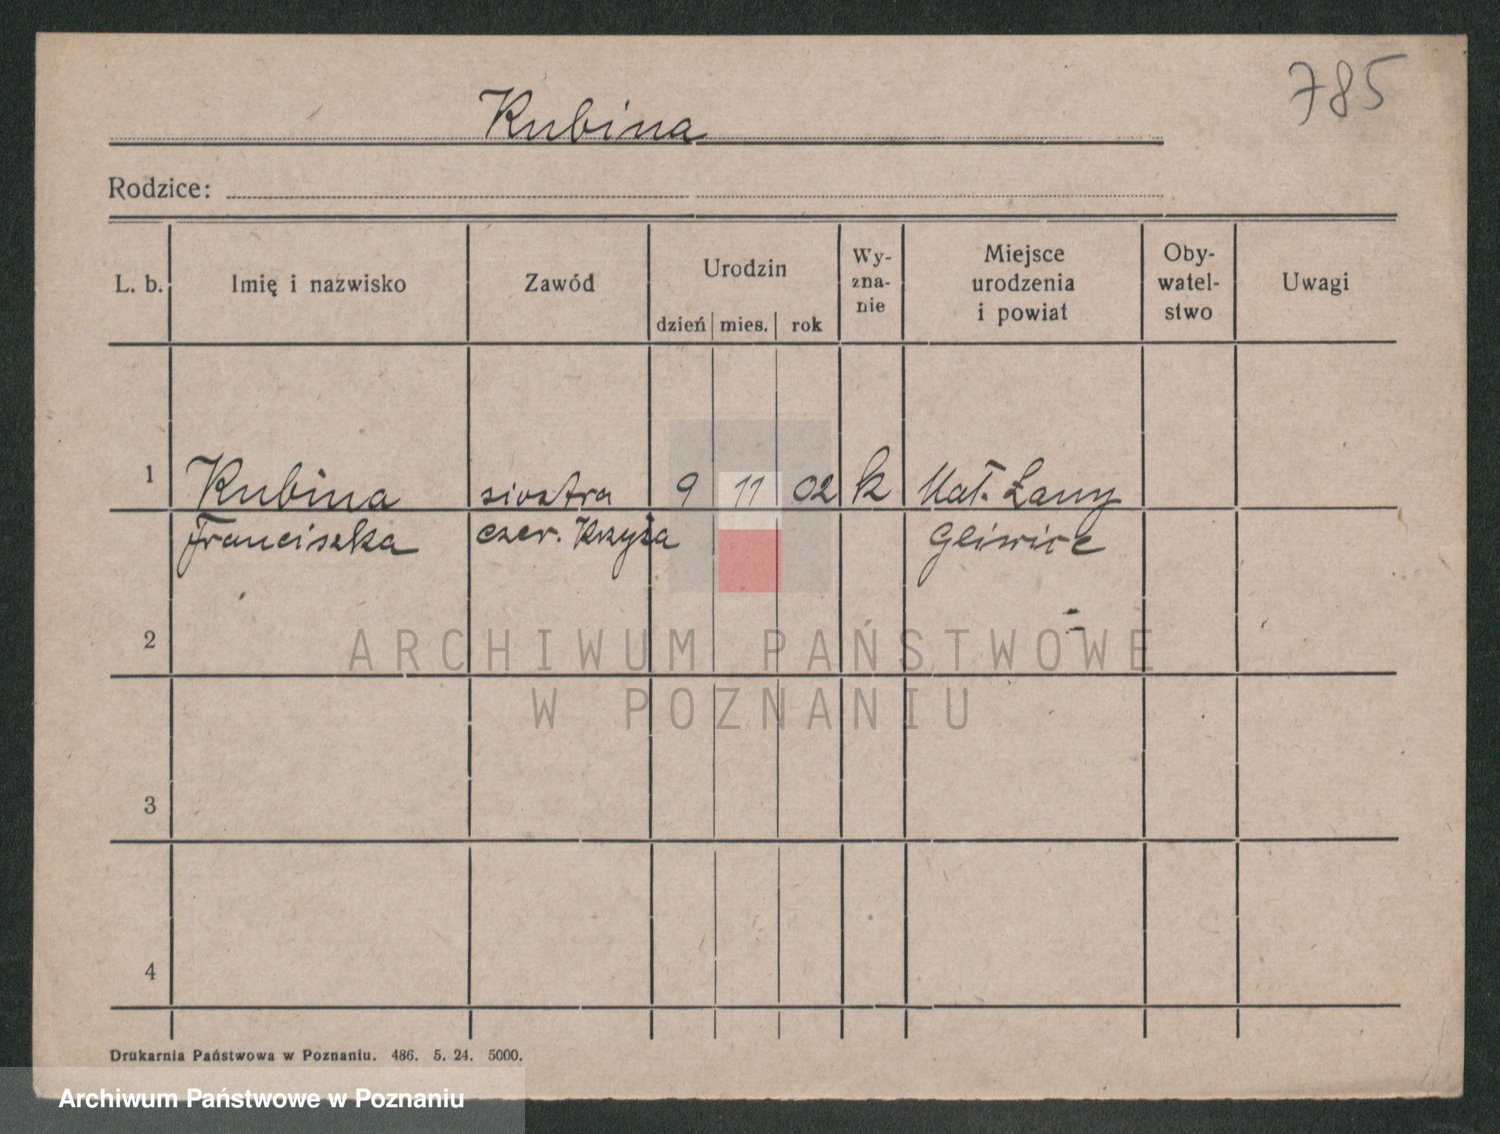 785
Kubina
Rodzice:
L. b. Imię i nazwisko Zawód Urodzin dzień mies. rok Wy-zna-nie Miejsce urodzenia i powiat Oby-watel-stwo Uwagi
1 Kubina siostra 9 11 02 k Mat. Łany
Franciszka czer. Krzyża Gliwice
2
ARCHIWUM PAŃSTWOWE
W POZNANIU
3
4
Drukarnia Państwowa w Poznaniu. 486. 5. 24. 5000.
Archiwum Państwowe w Poznaniu